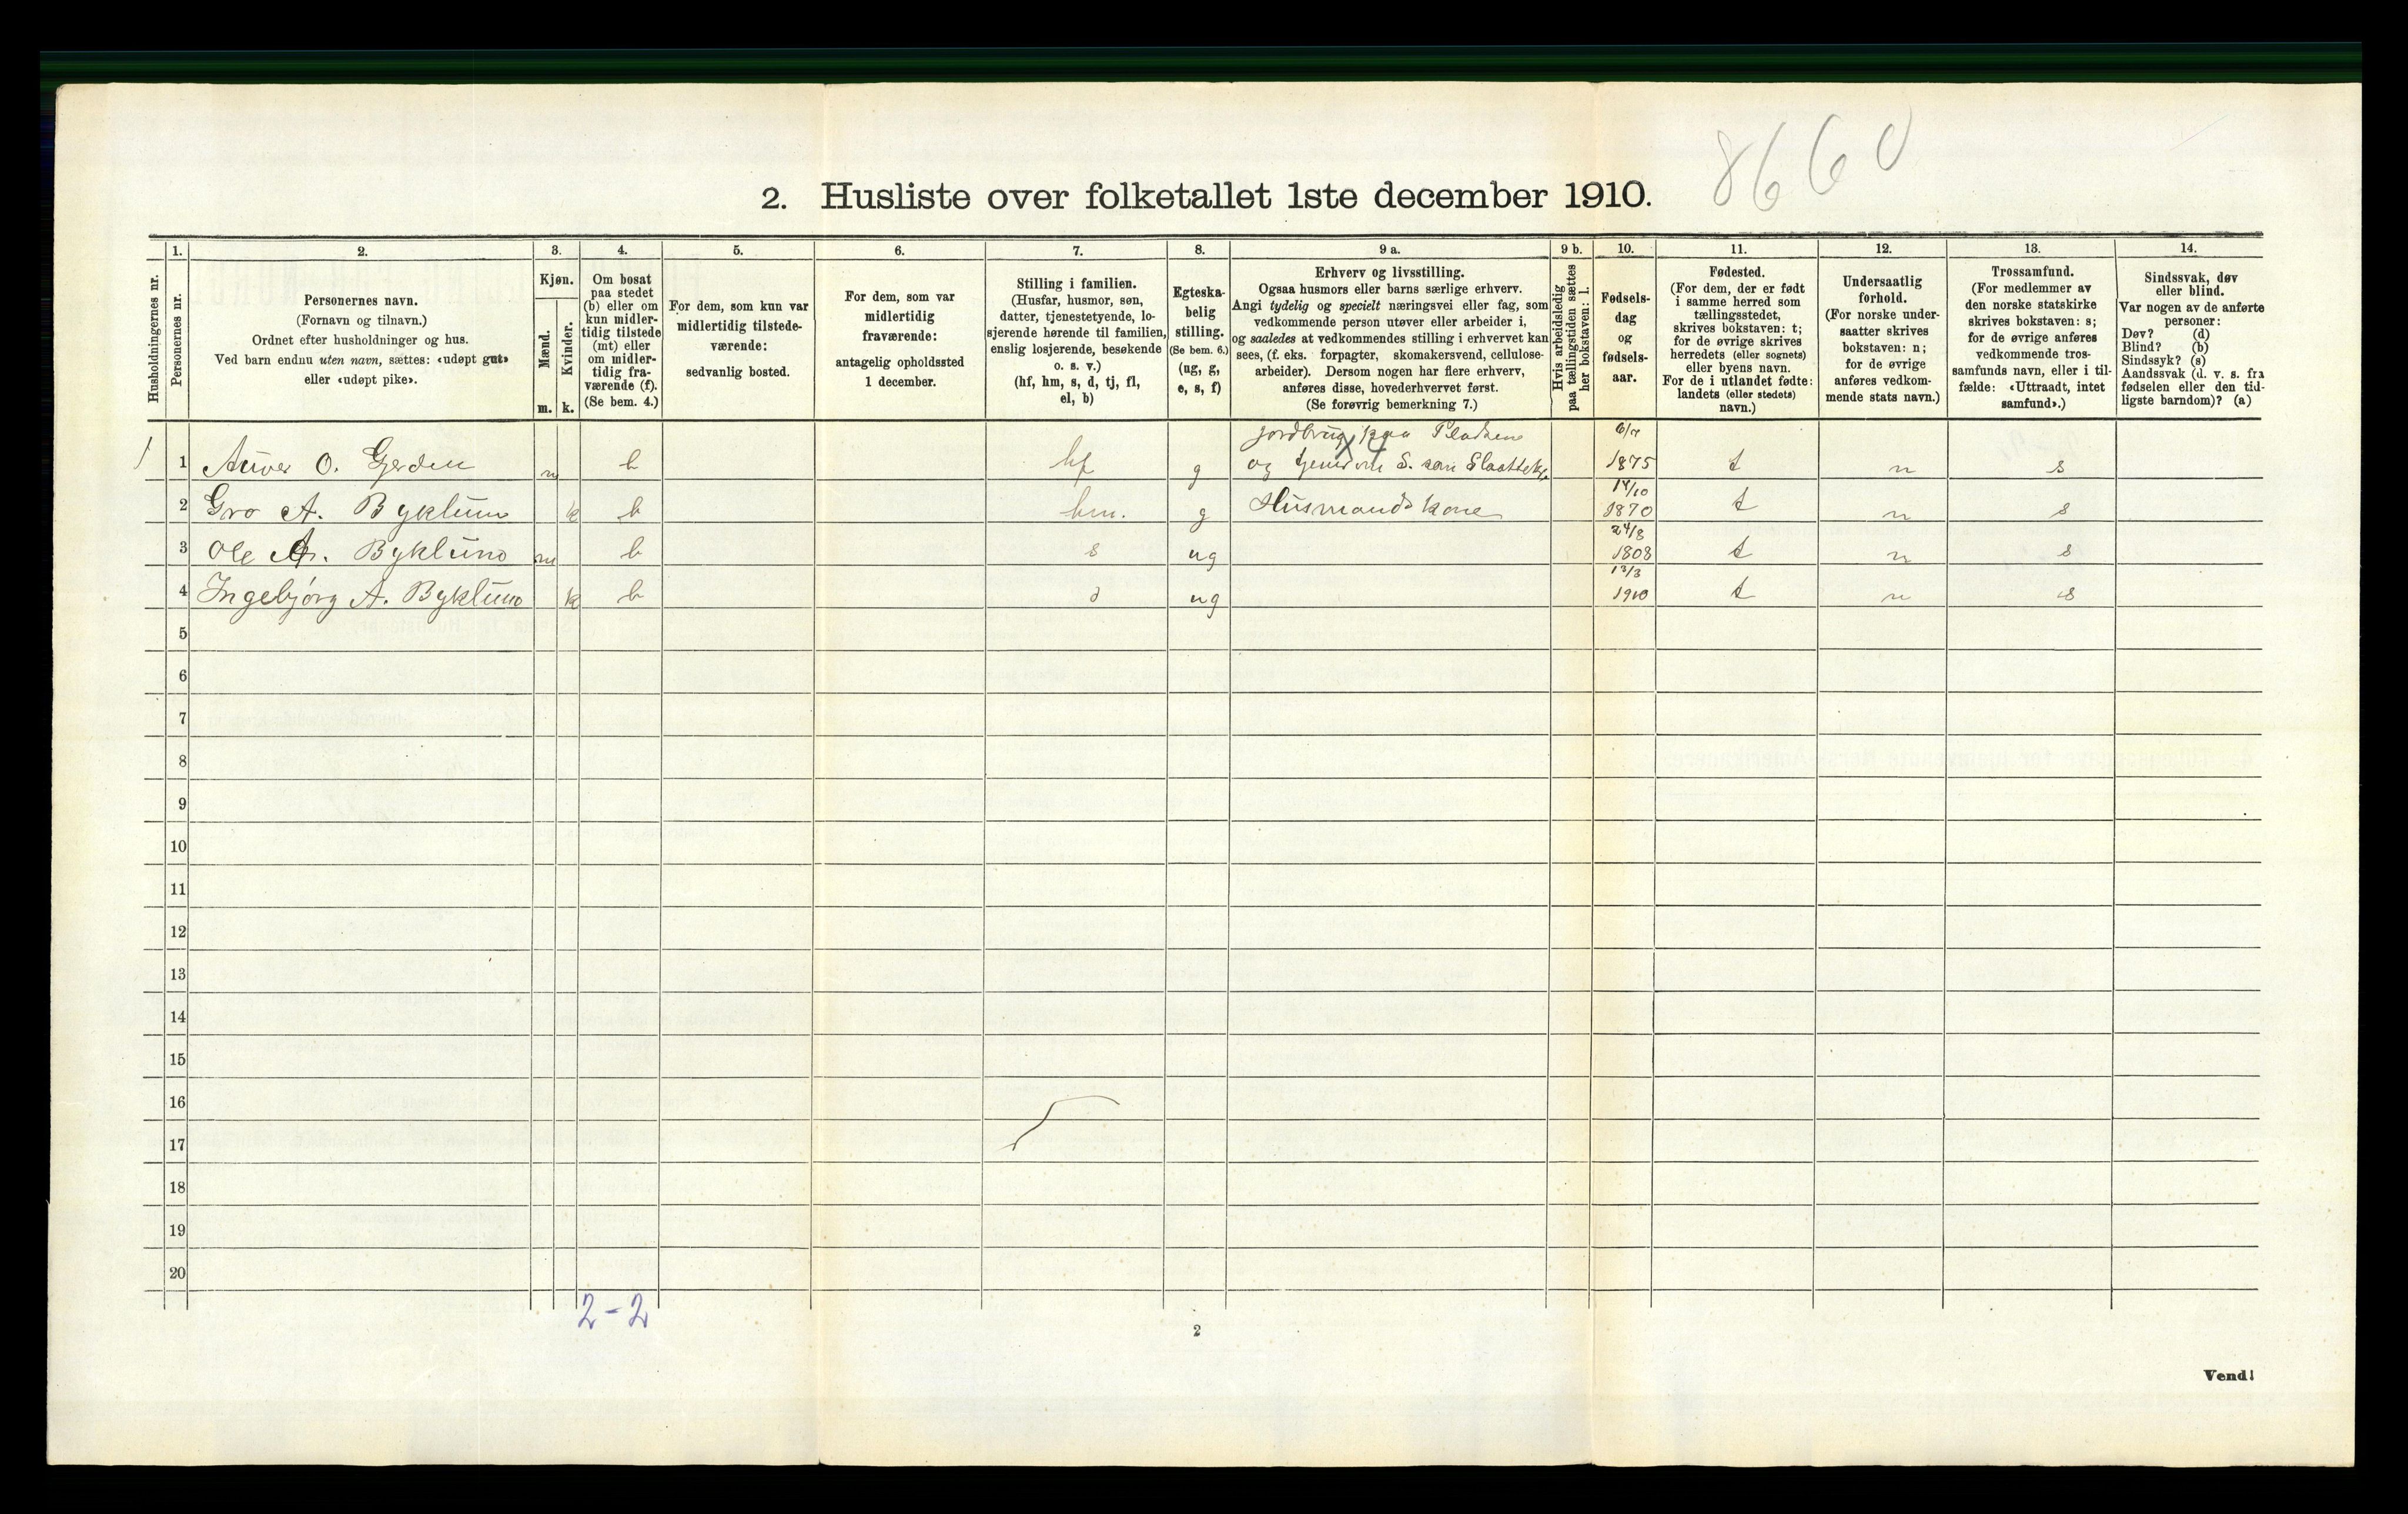 8660
2. Husliste over folketallet 1ste december 1910.
Husholdningernes nr.
1.
Personernes nr.
2.
Personernes navn.
(Fornavn og tilnavn.)
Ordnet efter husholdninger og hus.
Ved barn endnu uten navn, sættes: «udøpt gut»
eller «udøpt pike».
3.
Kjøn.
Mænd.
m.
Kvinder.
k.
4.
Om bosat
paa stedet
(b) eller om
kun midler-
tidig tilstede
(mt) eller
om midler-
tidig fra-
værende (f).
(Se bem. 4.)
5.
For dem, som kun var
midlertidig tilstede-
værende:
sedvanlig bosted.
6.
For dem, som var
midlertidig
fraværende:
antagelig opholdssted
1 december.
7.
Stilling i familien.
(Husfar, husmor, søn,
datter, tjenestetyende, lo-
sjerende hørende til familien,
enslig losjerende, besøkende
o. s. v.)
(hf, hm, s, d, tj, fl,
el, b)
8.
Egteska-
belig
stilling.
(Se bem. 6.)
(ug, g,
e, s, f)
9 a.
Erhverv og livsstilling.
Ogsaa husmors eller barns særlige erhverv.
Angi tydelig og specielt næringsvei eller fag, som
vedkommende person utøver eller arbeider i,
og saaledes at vedkommendes stilling i erhvervet kan
sees, (f. eks. forpagter, skomakersvend, cellulose-
arbeider). Dersom nogen har flere erhverv,
anføres disse, hovederhvervet først.
(Se forøvrig bemerkning 7.)
9 b.
Hvis arbeidsledig
paa tællingstiden sættes
her bokstaven: l.
10.
Fødsels-
dag
og
fødsels-
aar.
11.
Fødested.
(For dem, der er født
i samme herred som
tællingsstedet,
skrives bokstaven: t;
for de øvrige skrives
herredets (eller sognets)
eller byens navn.
For de i utlandet fødte:
landets (eller stedets)
navn.)
12.
Undersaatlig
forhold.
(For norske under-
saatter skrives
bokstaven: n;
for de øvrige
anføres vedkom-
mende stats navn.)
13.
Trossamfund.
(For medlemmer av
den norske statskirke
skrives bokstaven: s;
for de øvrige anføres
vedkommende tros-
samfunds navn, eller i til-
fælde: «Uttraadt, intet
samfund».)
14.
Sindssvak, døv
eller blind.
Var nogen av de anførte
personer:
Døv? (d)
Blind? (b)
Sindssyk? (s)
Aandssvak (d. v. s. fra
fødselen eller den tid-
ligste barndom)? (a)
jordbrug paa 6/7
1 1 O. Gjerden m b hf g og S. 1875 t n s
14/10
2 Gro A. Byklum k b hm. g Husmandskone 1870 t n s
24/8
3 Ole A. Byklum m b s ug 1808 t n s
13/3
4 Ingebjørg A. Byklum k b d ug 1910 t n s
5
6
7
8
9
10
11
12
13
14
15
16
17
18
19
20
2-2
2
Vend!